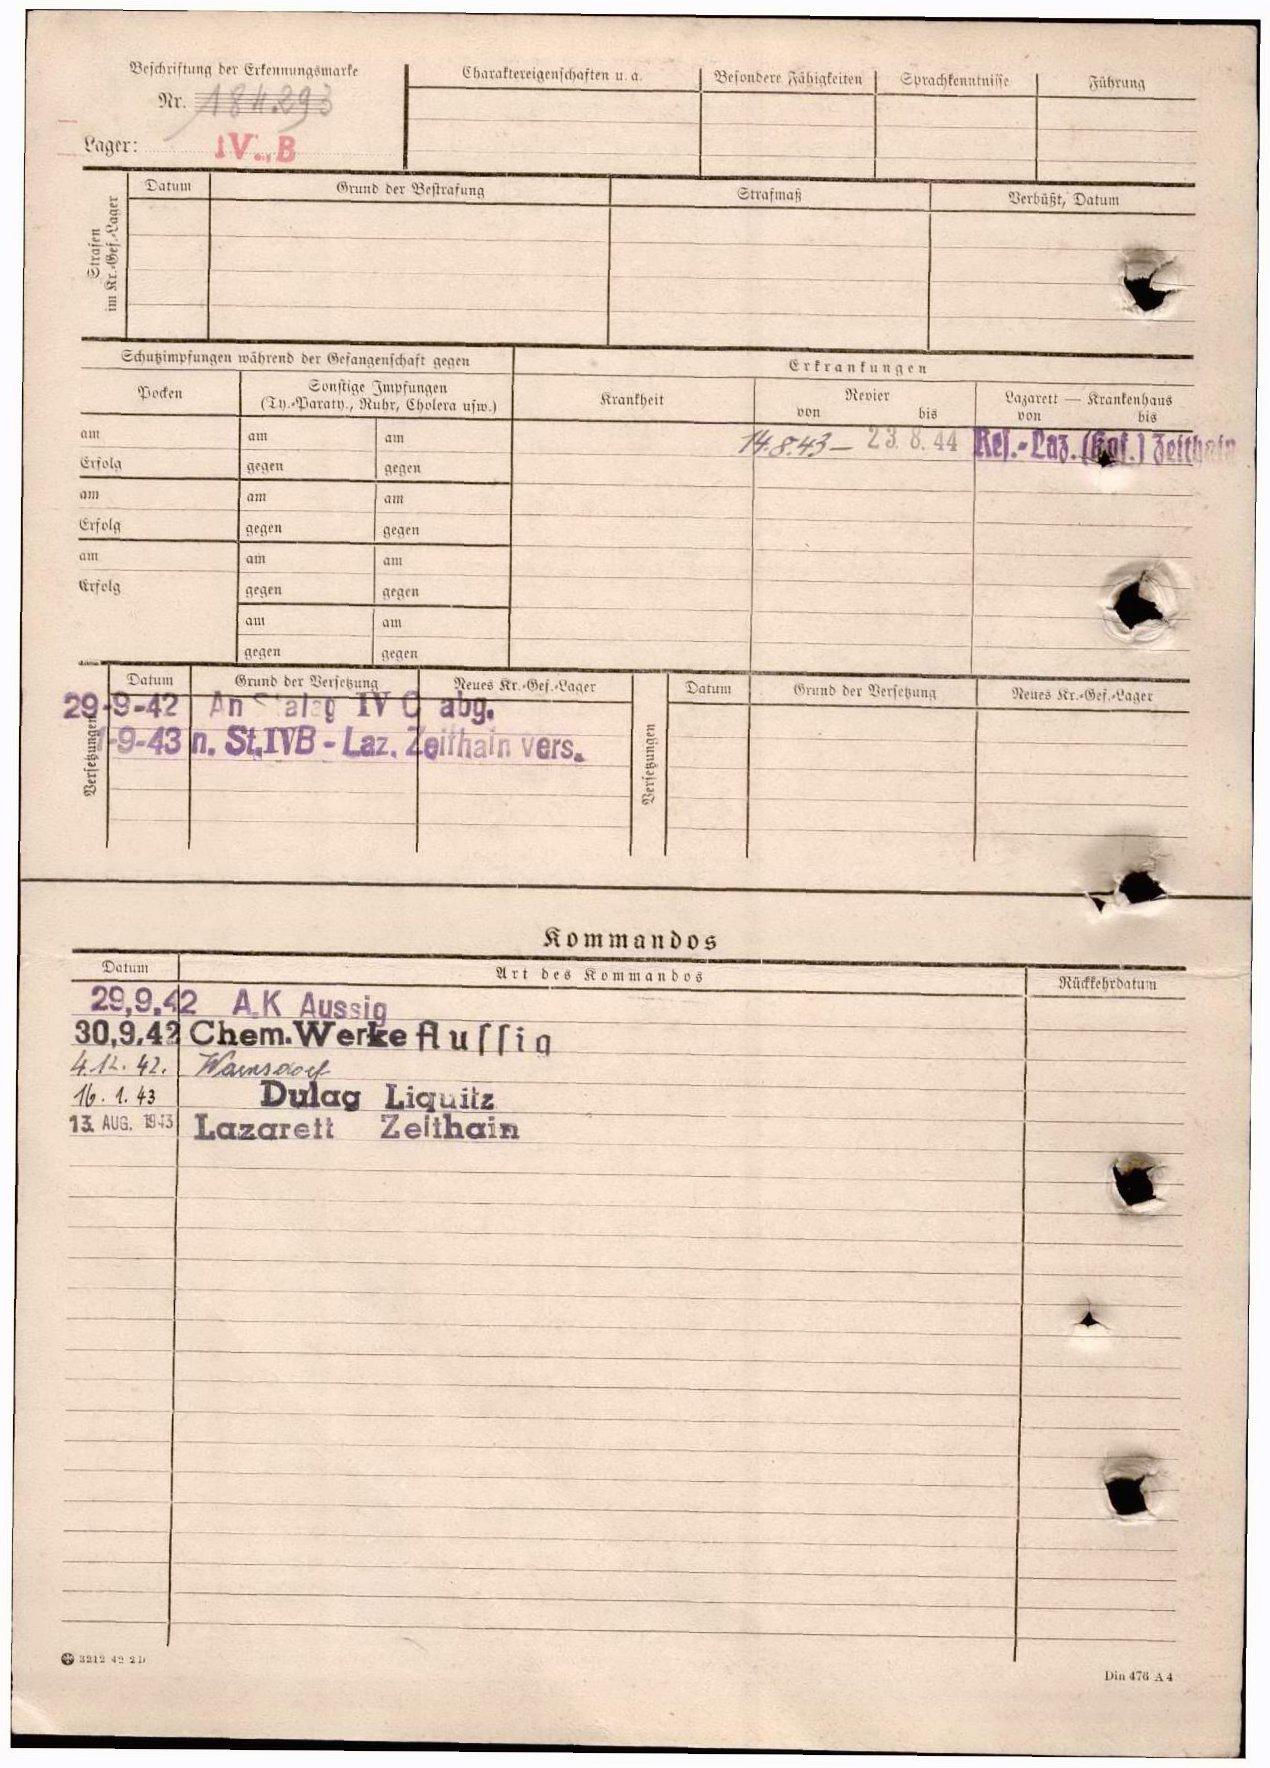 Beschriftung der Erkennungsmarke
Nr. 184.293
Lager: IV B
Charaktereigenschaften u. a.
Besondere Fähigkeiten
Sprachkenntnisse
Führung
Strafen
im Kr.-Gef.-Lager
Datum
Grund der Bestrafung
Strafmaß
Verbüßt, Datum
Schutzimpfungen während der Gefangenschaft gegen
Erkrankungen
Pocken
Sonstige Impfungen
(Ty.-Paraty., Ruhr, Cholera usw.)
Krankheit
Revier
von bis
Lazarett — Krankenhaus
von bis
am am am
14.8.43 – 23. 8. 44 Res.-Laz. (Kgf.) Zeithain
Erfolg gegen gegen
am am am
Erfolg gegen gegen
am am am
Erfolg gegen gegen
am am
gegen gegen
Versetzungen
Datum Grund der Versetzung Neues Kr.-Gef.-Lager
29-9-42 An Stalag IV C abg.
1-9-43 n. St.IVB - Laz. Zeithain vers.
Versetzungen
Datum Grund der Versetzung Neues Kr.-Gef.-Lager
Kommandos
Datum Art des Kommandos Rückkehrdatum
29,9.42 A.K Aussig
30,9.42 Chem.Werke Aussig
4.12.42.
16.1.43 Dulag Liquitz
13. AUG. 1943 Lazarett Zeithain
3212 42 2D
Din 476 A 4